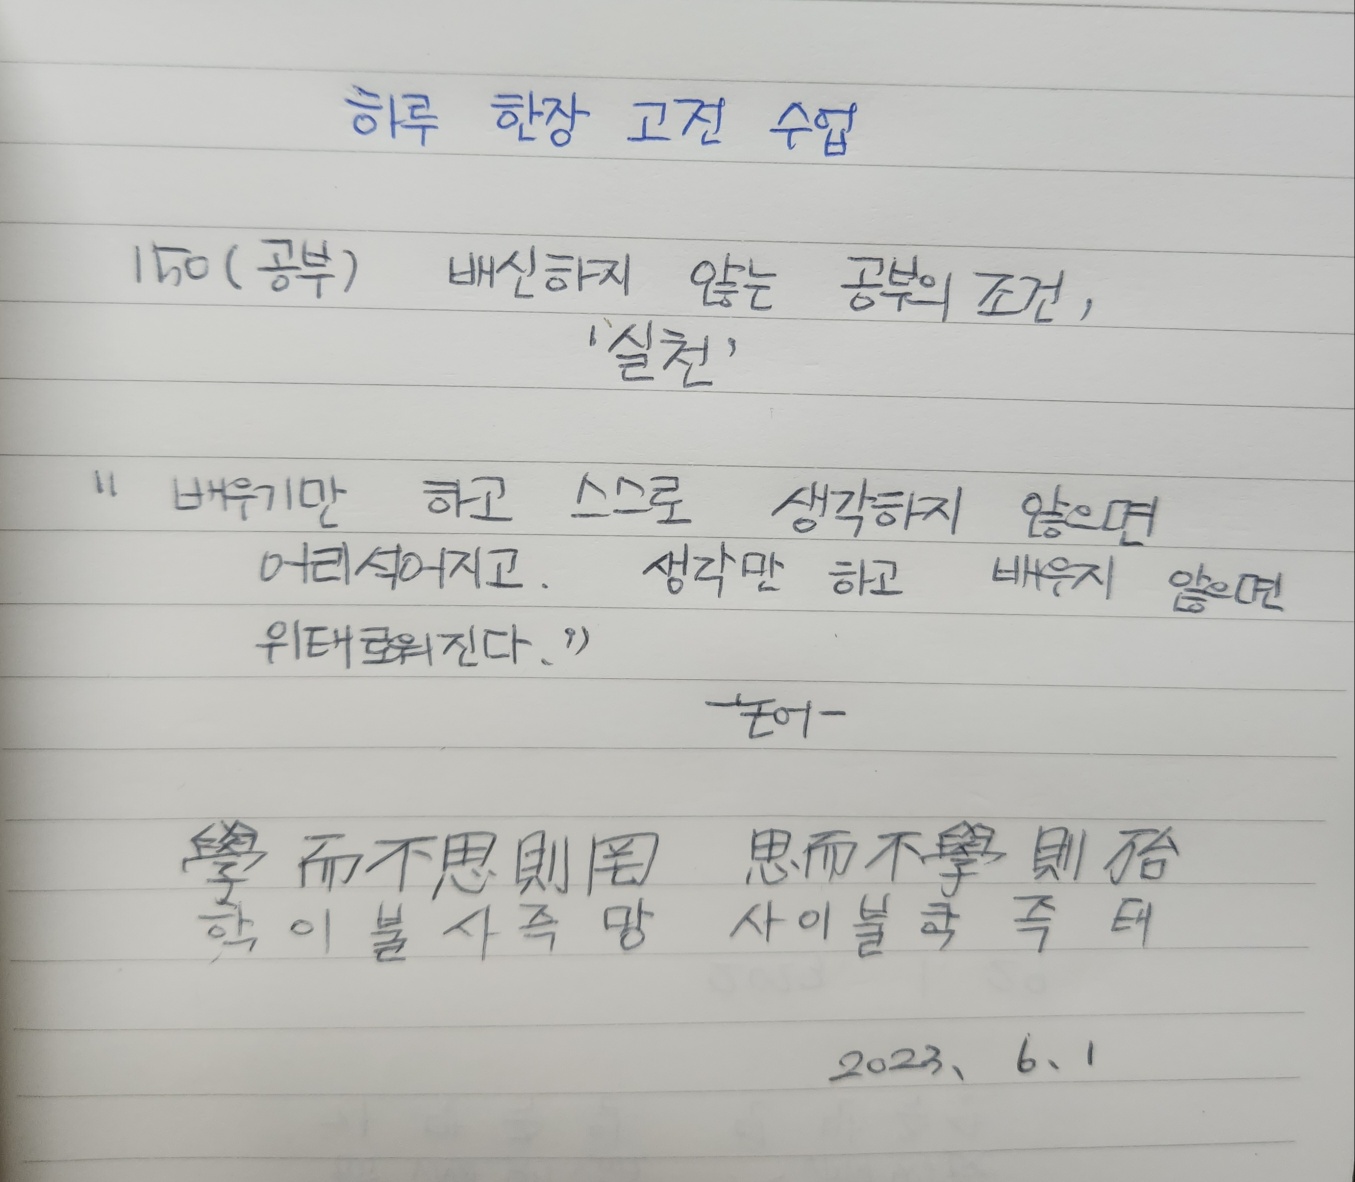 하루 한장 고전 수업
150(공부) 배신하지 않는 공부의 조건,
'실천'
" 배우기만 하고 스스로 생각하지 않으면
어리석어지고. 생각만 하고 배우지 않으면
위태로워진다."
-논어-
學而不思則罔 思而不學則殆
학이불사즉망 사이불학즉태
2023. 6. 1